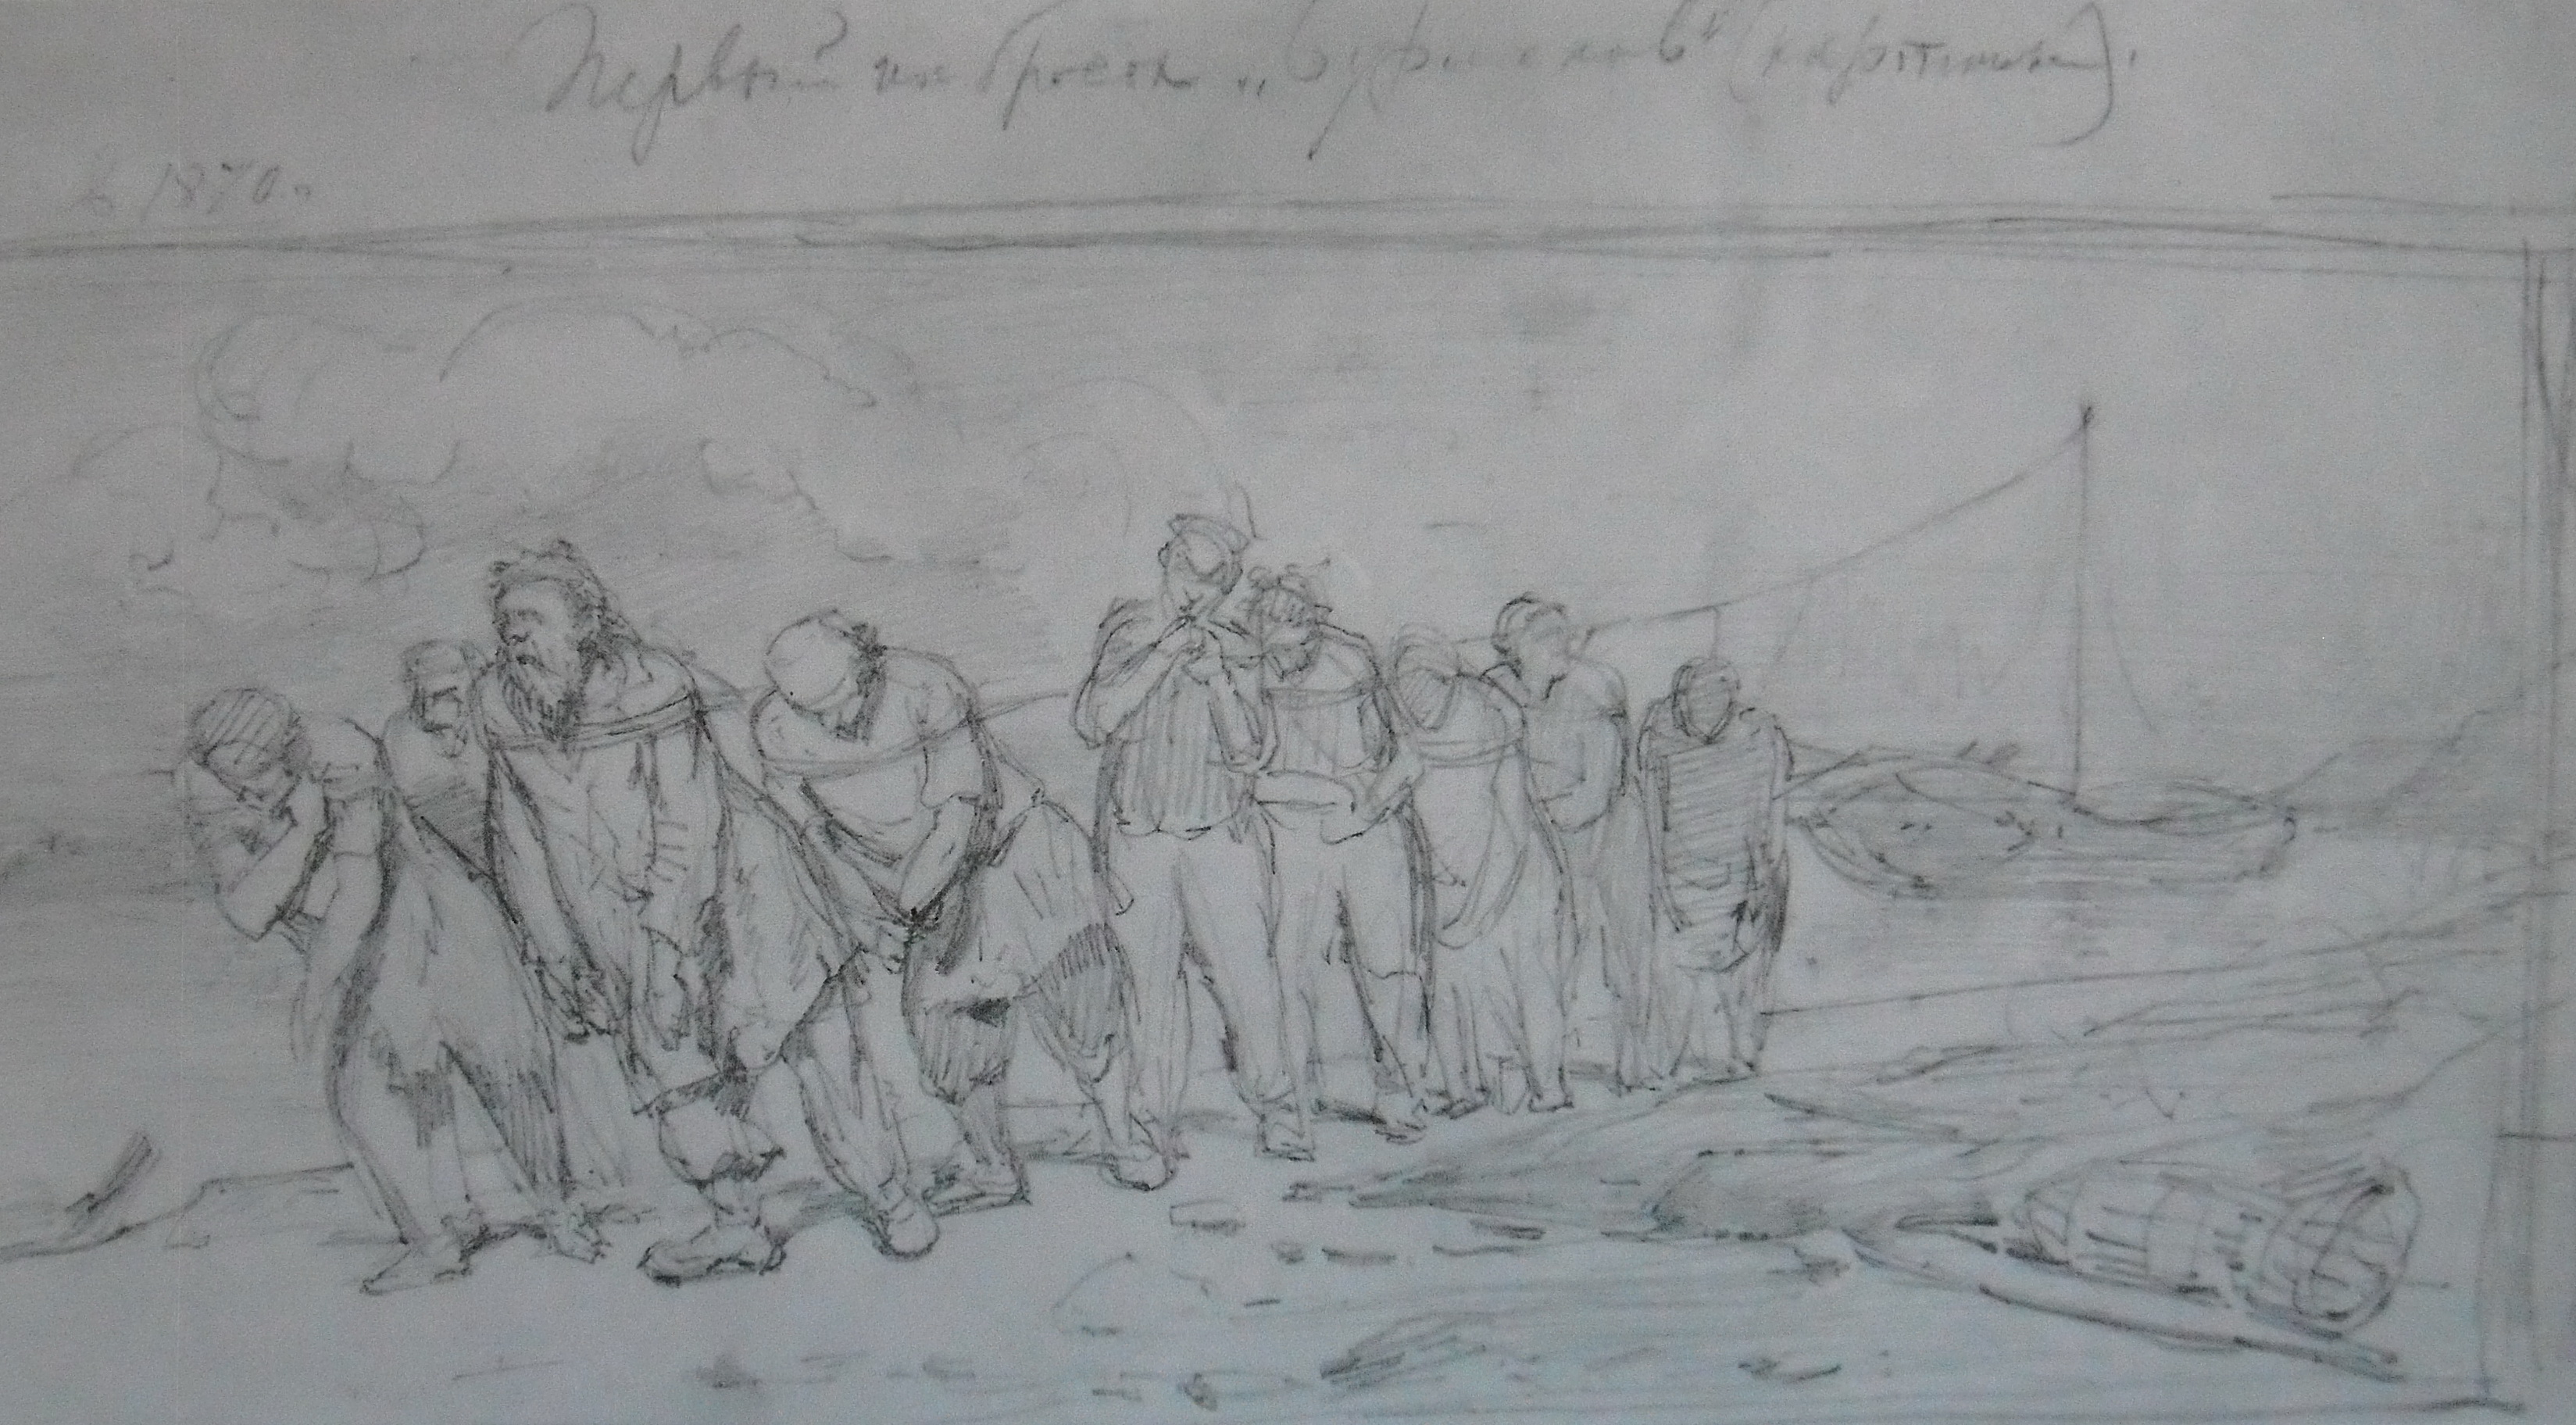 Первый набросок „Бурлаков" (картины).
В 1870.